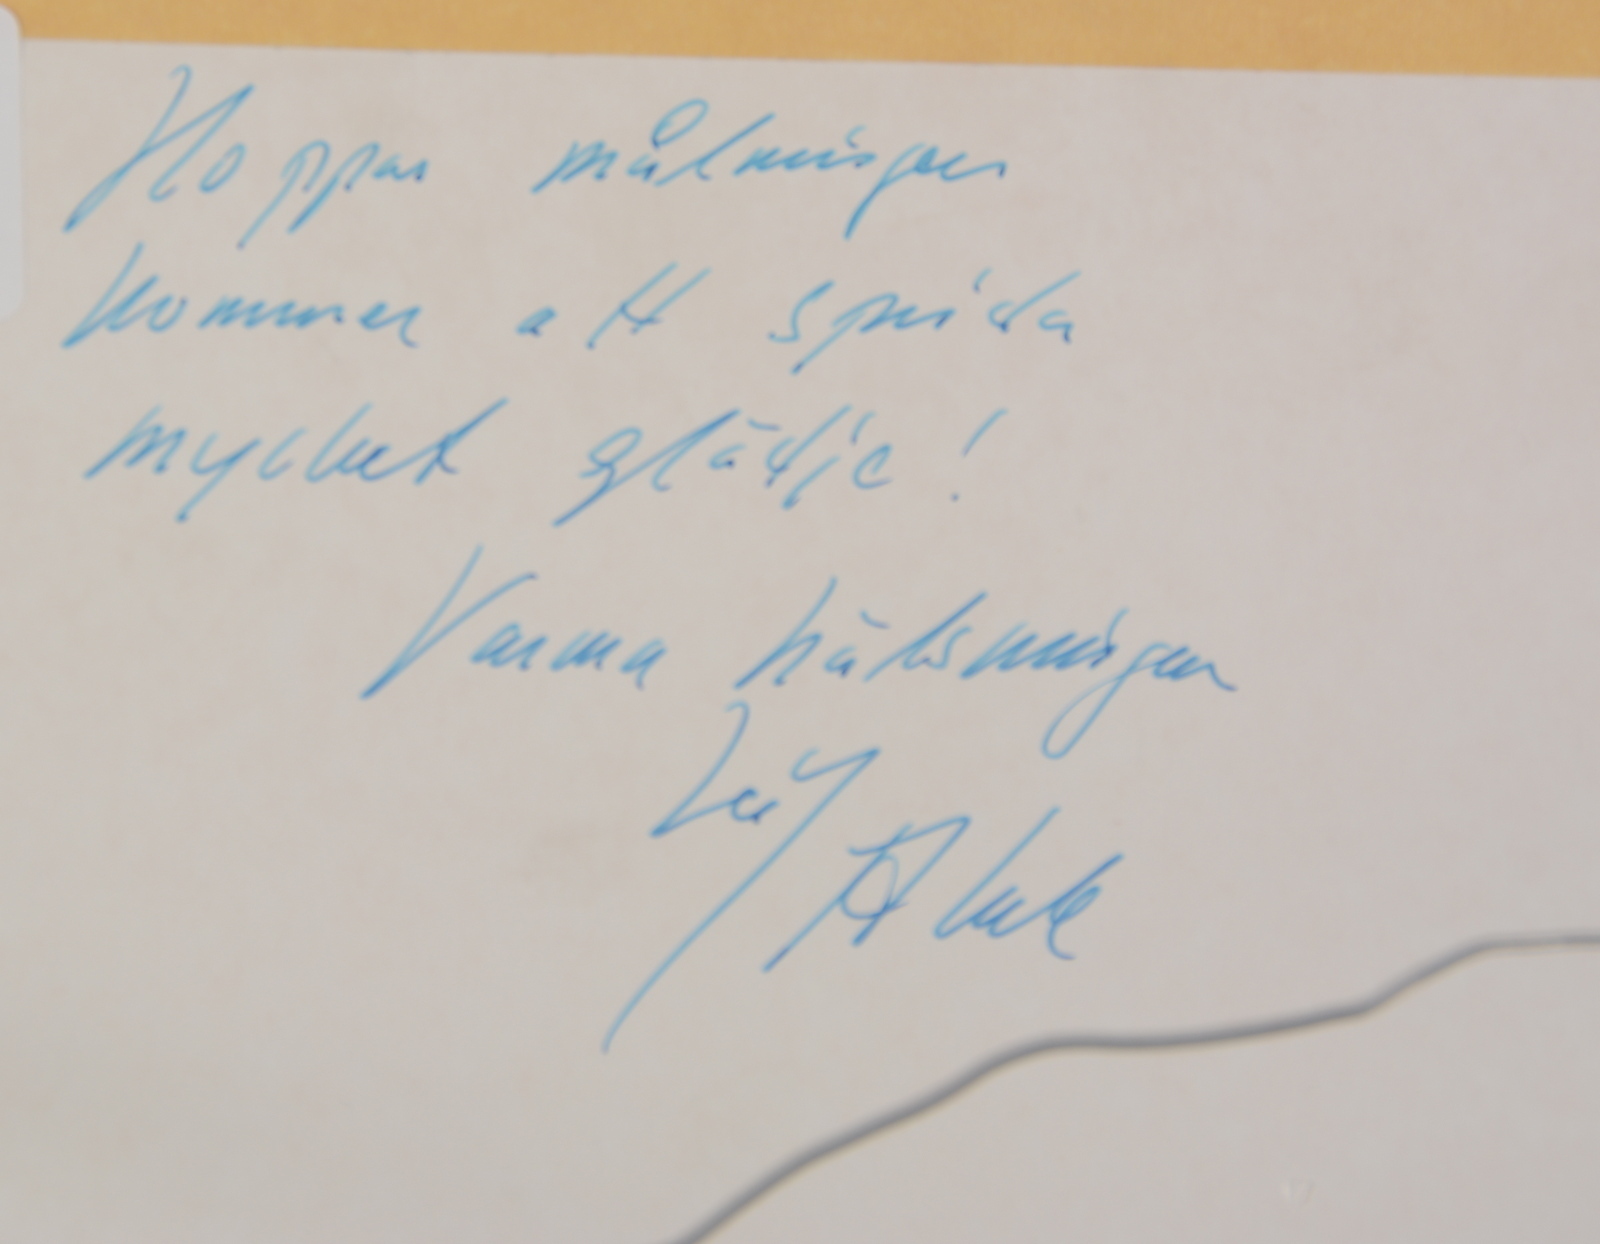 Hoppas målningen
kommer att sprida
mycket glädje!
Varma hälsningar
Leif